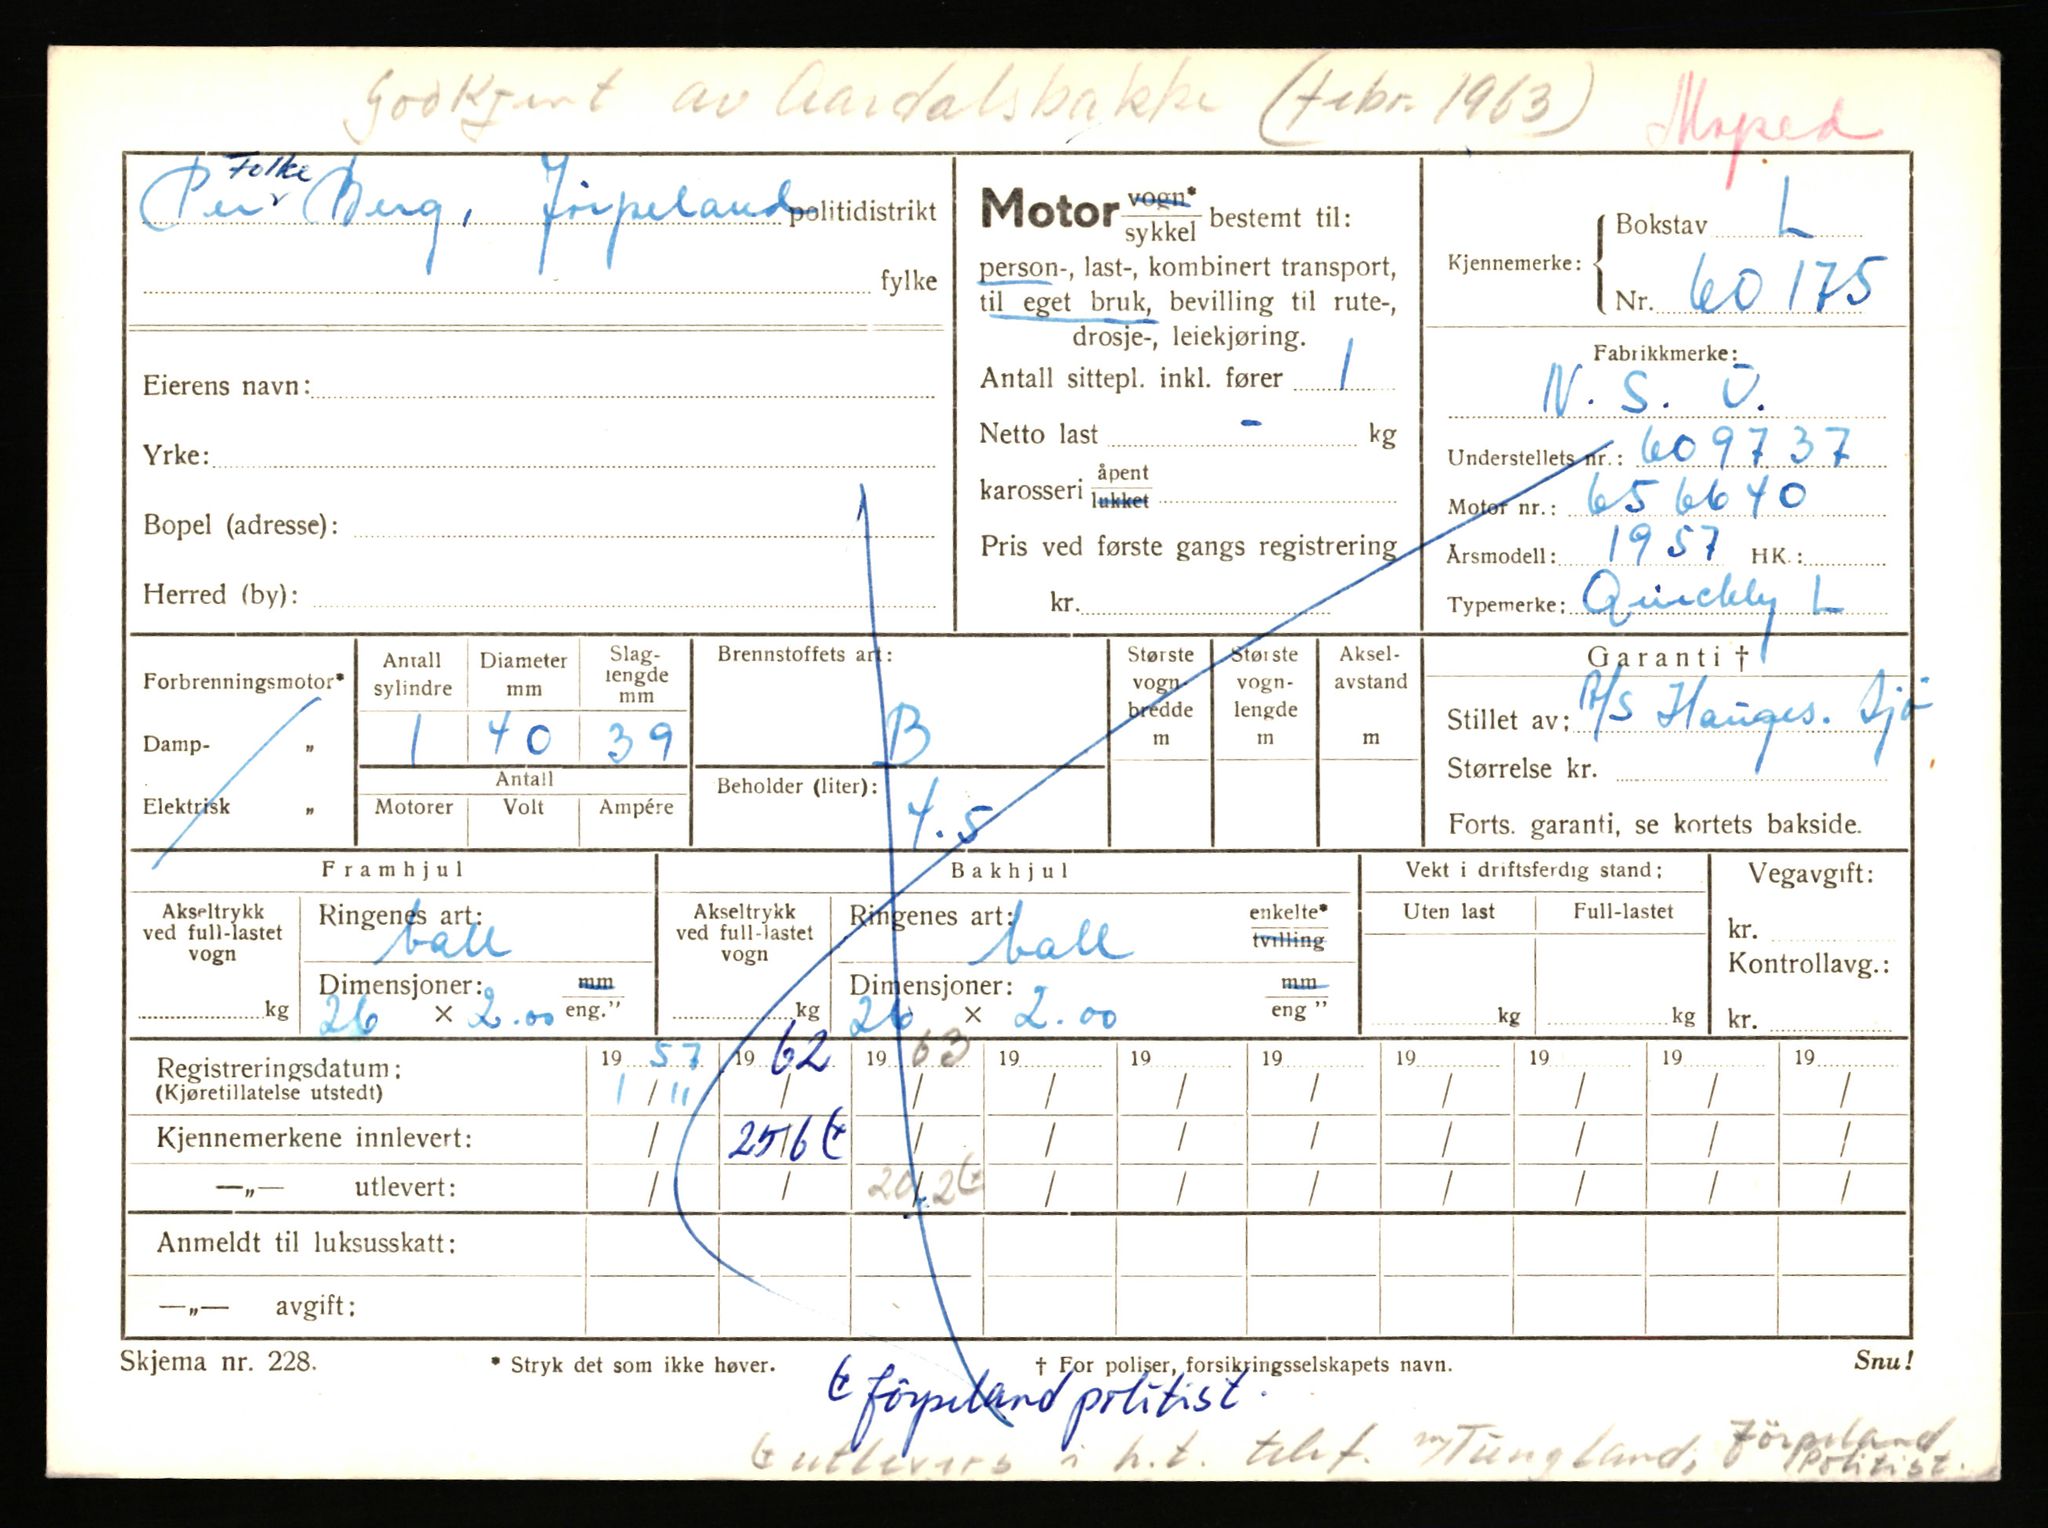 Godkjent av Aardalsbakke (febr. 1963) Moped
Folke
Per Berg, Jörpeland politidistrikt
fylke
Eierens navn:
Yrke:
Bopel (adresse):
Herred (by):
Motor vogn* sykkel bestemt til:
person-, last-, kombinert transport,
til eget bruk, bevilling til rute-,
drosje-, leiekjøring.
Antall sittepl. inkl. fører 1
Netto last - kg
karosseri åpent lukket
Pris ved første gangs registrering
kr.
Kjennemerke: Bokstav L
Nr. 60175
Fabrikkmerke:
N. S. U.
Understellets nr.: 609737
Motor nr.: 656640
Årsmodell: 1957 HK.:
Typemerke: Quickly L
Forbrenningsmotor*
Damp- „
Elektrisk „
Antall sylindre 1
Diameter mm 40
Slag-lengde mm 39
Antall
Motorer Volt Ampére
Brennstoffets art:
B
Beholder (liter):
4.5
Største vogn-bredde m
Største vogn-lengde m
Aksel-avstand m
Garanti †
Stillet av: A/S Hauges. Sjö
Størrelse kr.
Forts. garanti, se kortets bakside.
Framhjul
Akseltrykk ved full-lastet vogn
kg
Ringenes art:
ball
Dimensjoner: mm
26 × 2.00 eng.”
Bakhjul
Akseltrykk ved full-lastet vogn
kg
Ringenes art: enkelte* tvilling
ball
Dimensjoner: mm
26 × 2.00 eng”
Vekt i driftsferdig stand:
Uten last Full-lastet
kg kg
Vegavgift:
kr.
Kontrollavg.:
kr.
Registreringsdatum: 19 57 19 62 19 63 19 19 19 19 19 19 19
(Kjøretillatelse utstedt) 1 / 11 / / / / / / / / /
Kjennemerkene innlevert: / 25/6 / / / / / / / /
—„— utlevert: / / 20/2 / / / / / / /
Anmeldt til luksusskatt:
—„— avgift:
Skjema nr. 228. * Stryk det som ikke høver. † For poliser, forsikringsselskapets navn. Snu!
Jörpeland politist.
utlevers i h.t. telef. m/Tungland, Jörpeland
Politist.